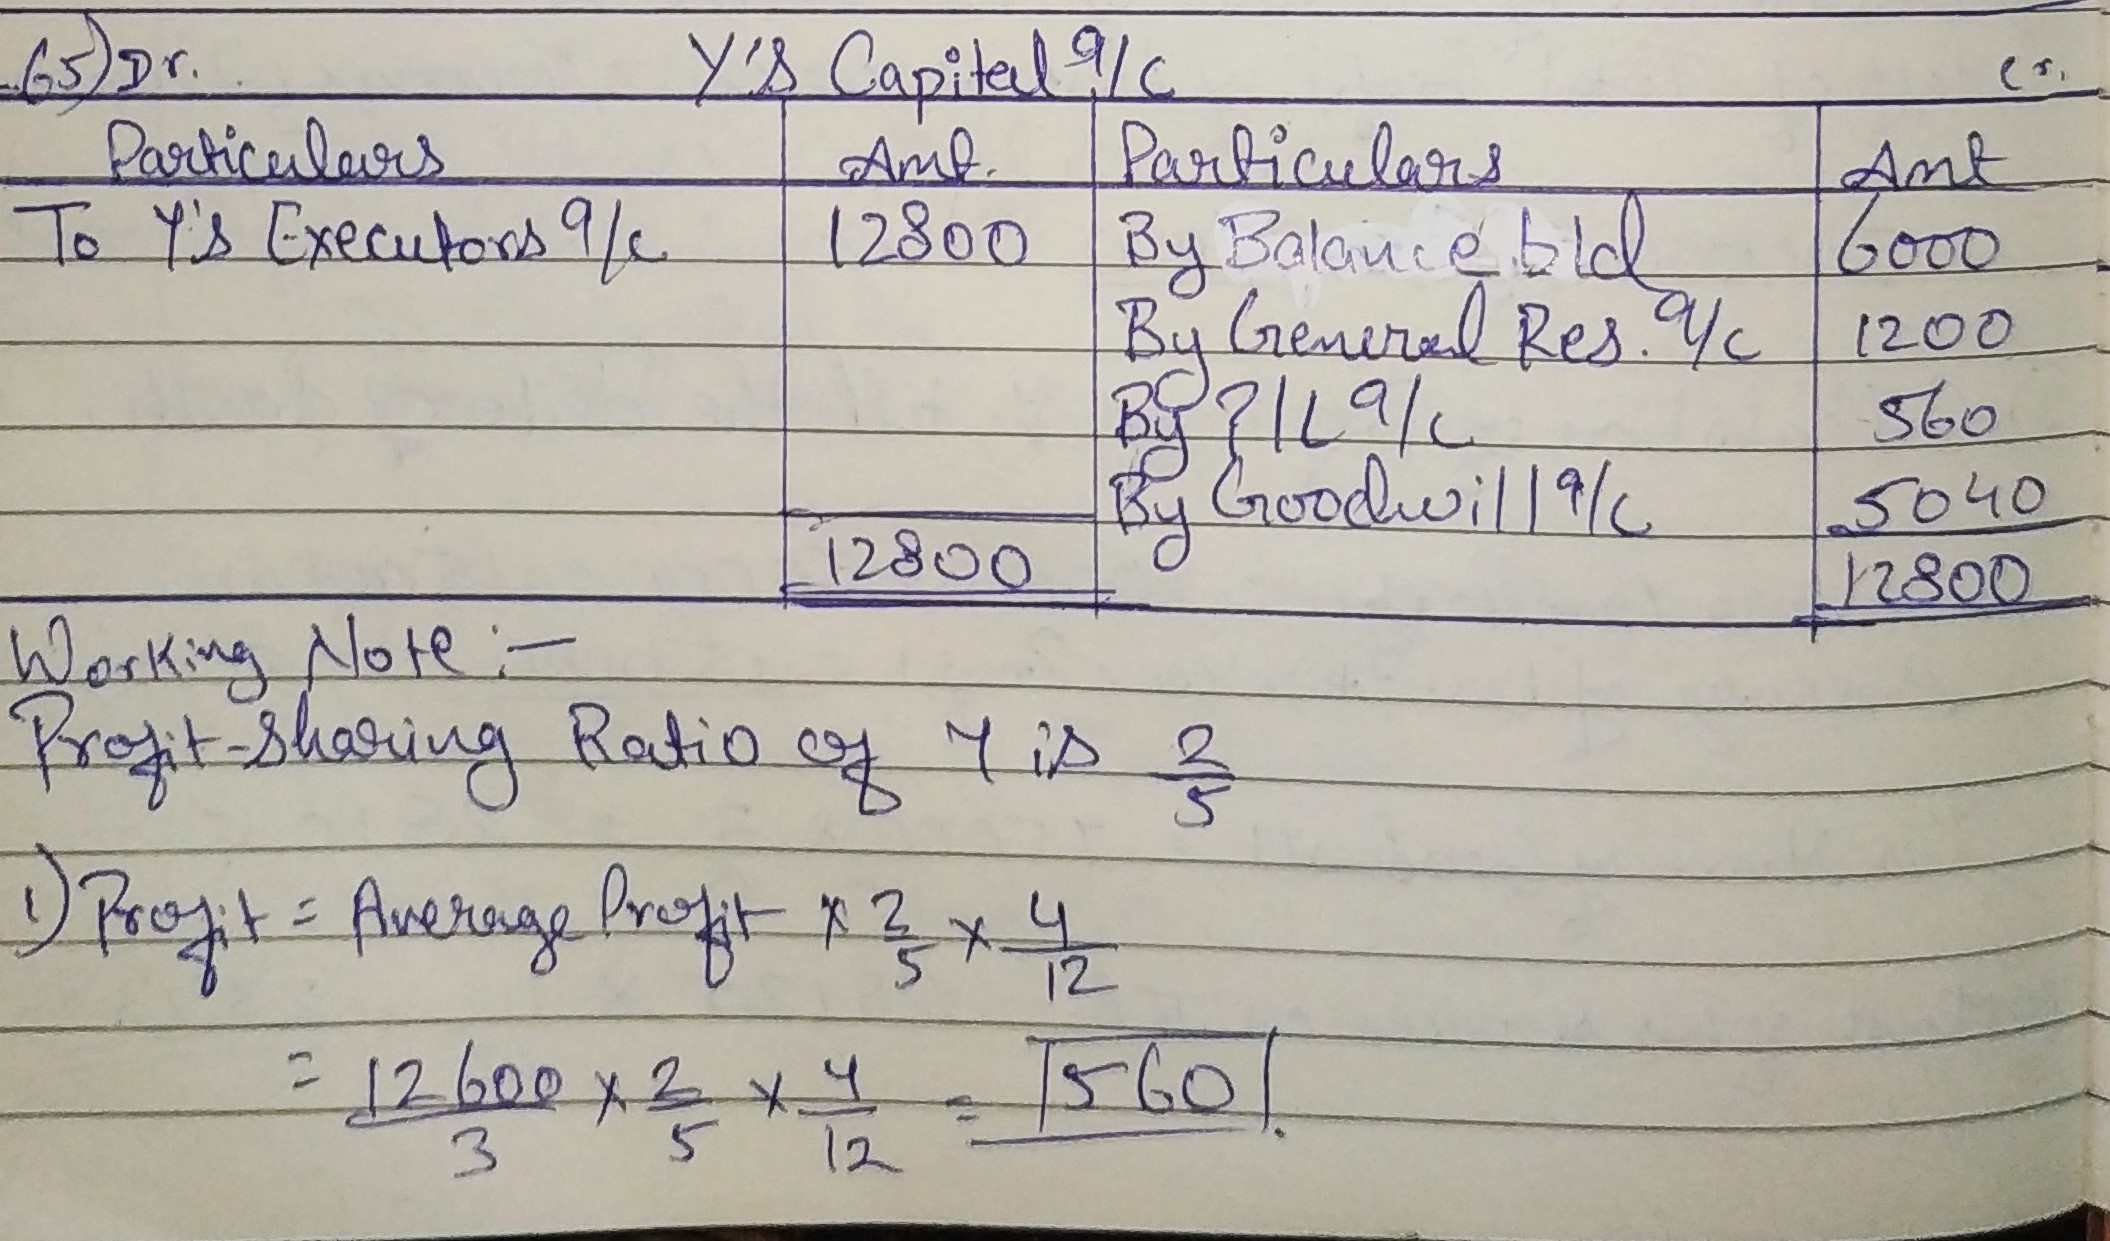 65) Dr. Y's Capital a/c Cr.
Particulars Amt. Particulars Amt
To Y's Executors a/c 12800 By Balance b/d 6000
By General Res. a/c 1200
By P/L a/c 560
By Goodwill a/c 5040
12800 12800
Working Note :-
Profit-Sharing Ratio of Y is 2/5
1) Profit = Average Profit × 2/5 × 4/12
= 12600/3 × 2/5 × 4/12 = 560.